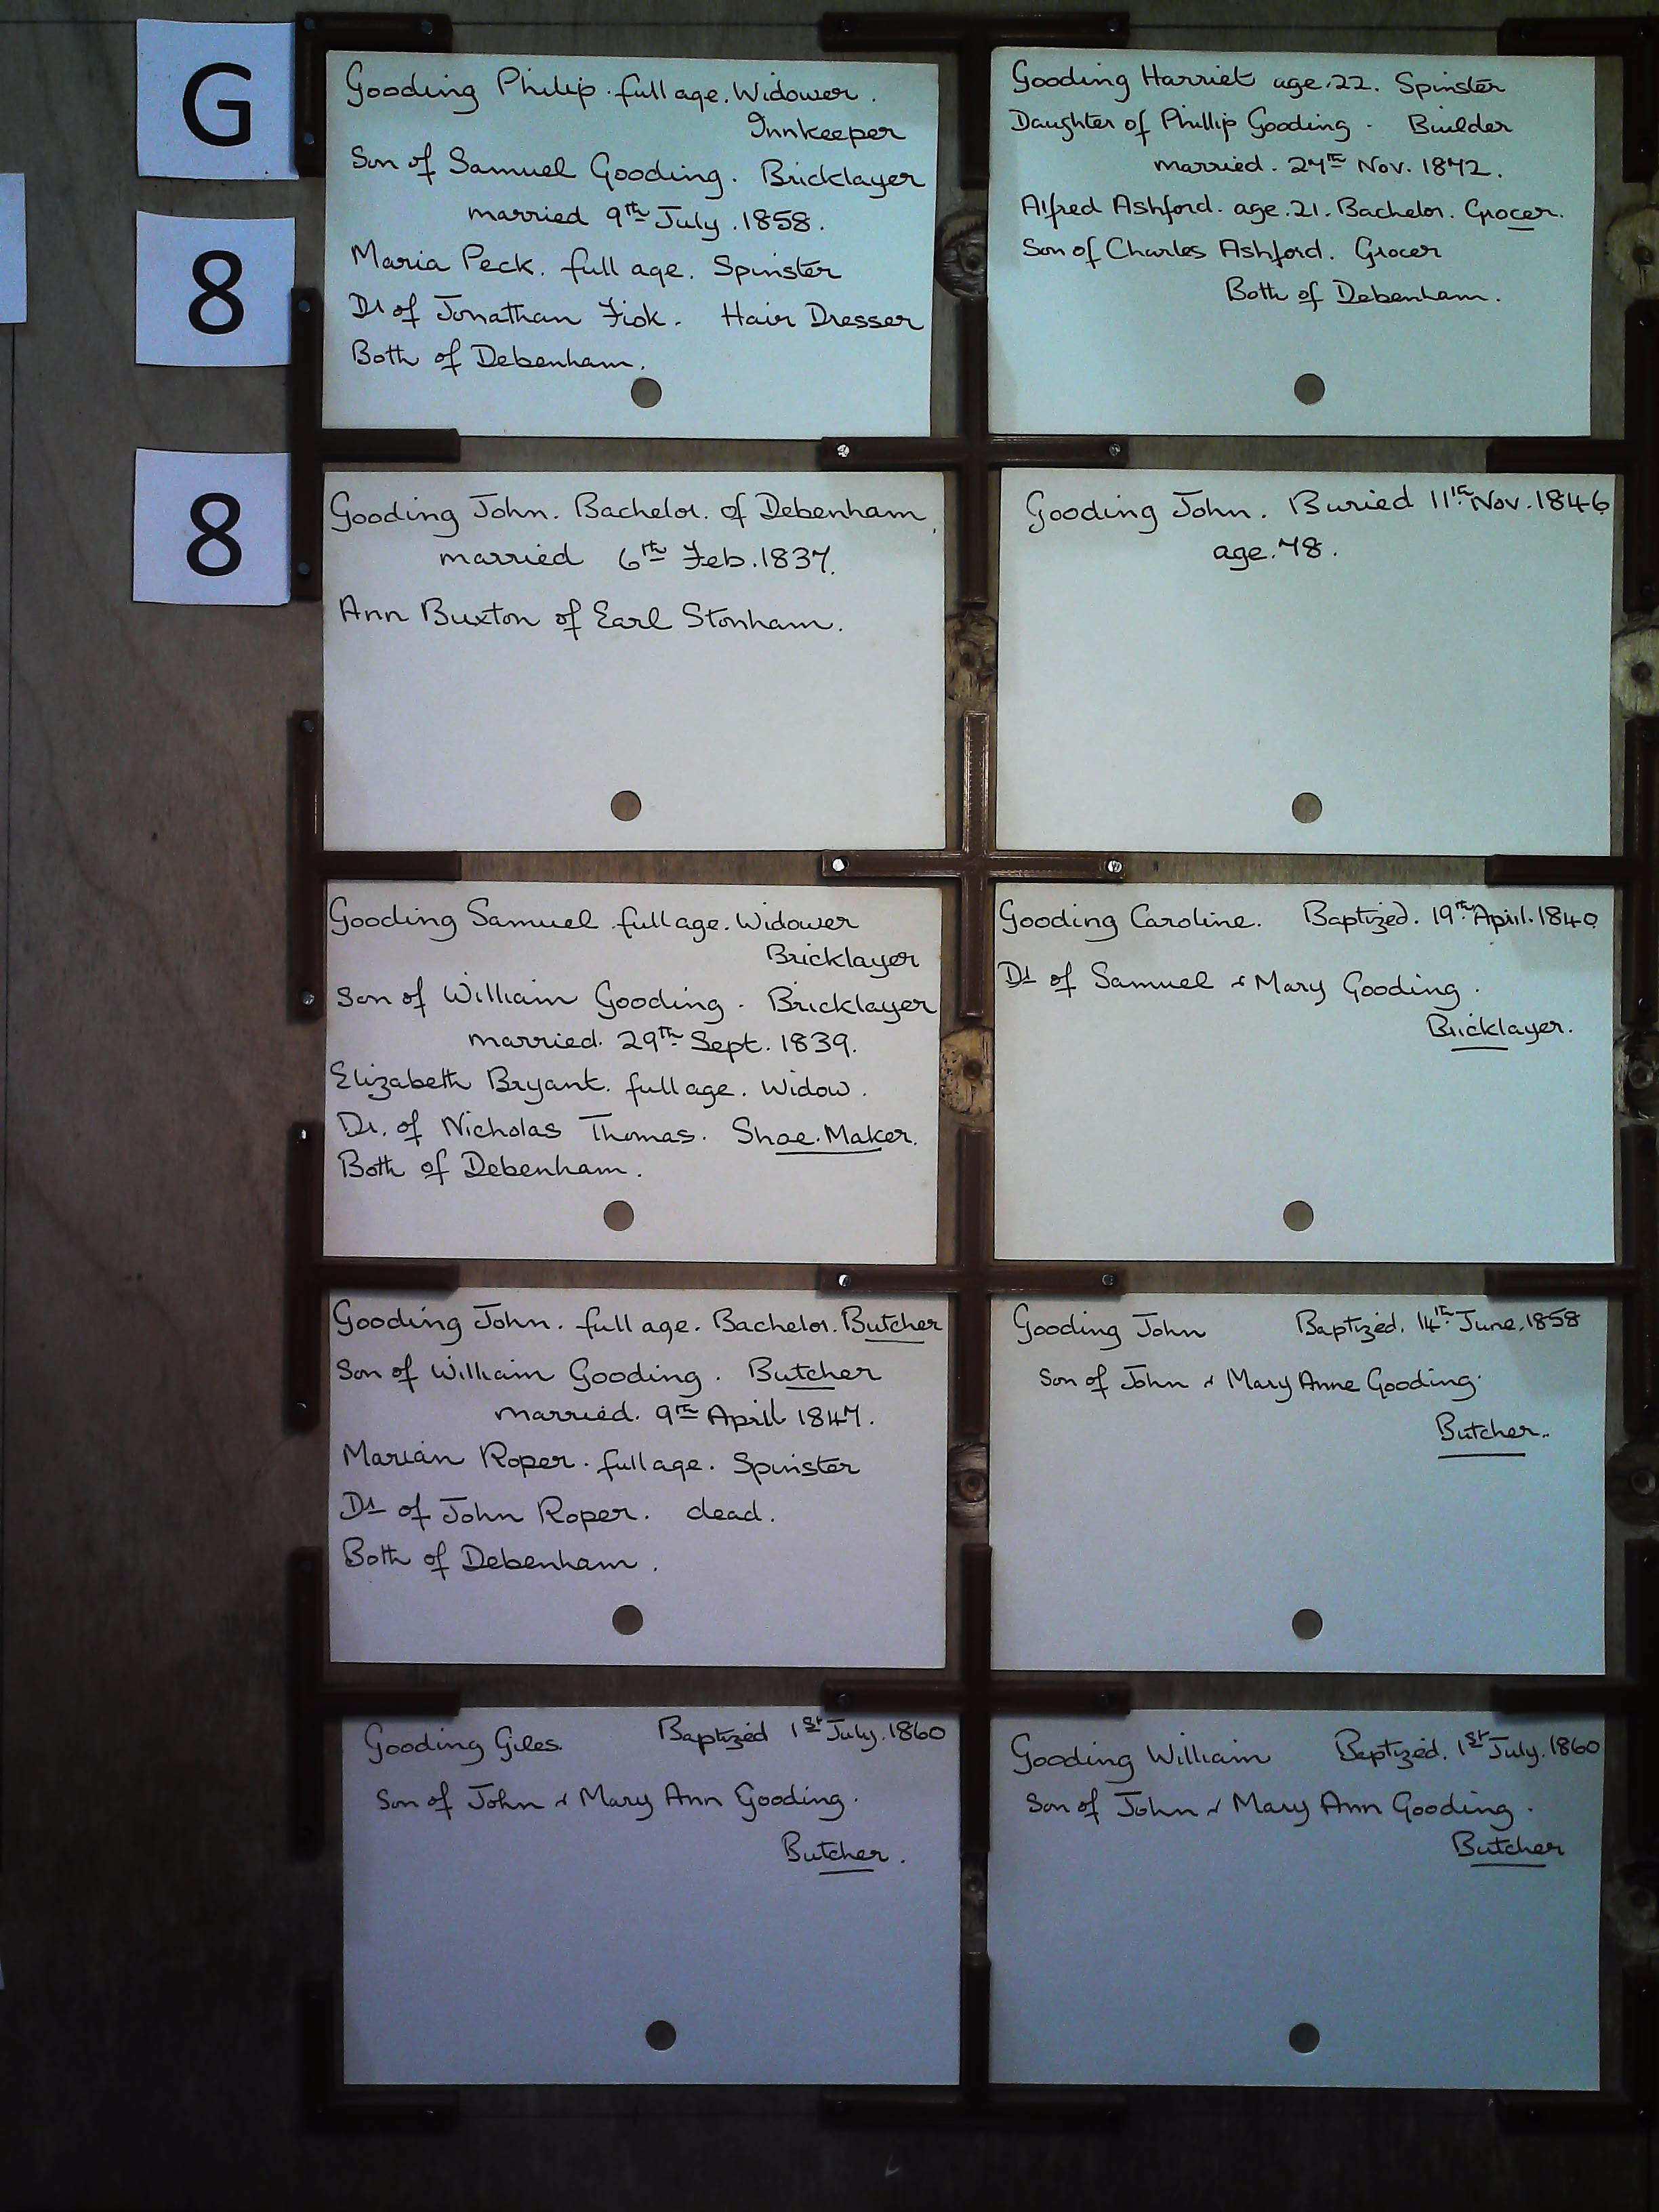 G
8
8
Gooding Philip. full age. Widower.
Innkeeper
Son of Samuel Gooding. Bricklayer
married 9th July. 1858.
Maria Peck. full age. Spinster
Dr of Jonathan Fisk. Hair Dresser
Both of Debenham.
Gooding Harriet age. 22. Spinster
Daughter of Phillip Gooding. Builder
married. 27th Nov. 1872.
Alfred Ashford. age. 21. Bachelor. Grocer.
Son of Charles Ashford. Grocer
Both of Debenham.
Gooding John. Bachelor. of Debenham.
married 6th Feb. 1837.
Ann Buxton of Earl Stonham.
Gooding John. Buried 11th Nov. 1846
age. 78.
Gooding Samuel. full age. Widower
Bricklayer
Son of William Gooding. Bricklayer
married. 29th Sept. 1839.
Elizabeth Bryant. full age. Widow.
Dr. of Nicholas Thomas. Shoe. Maker.
Both of Debenham.
Gooding Caroline. Baptized. 19th April. 1840
Dr of Samuel & Mary Gooding.
Bricklayer.
Gooding John. full age. Bachelor. Butcher
Son of William Gooding. Butcher
married. 9th April 1847.
Marian Roper. full age. Spinster
Dr of John Roper. dead.
Both of Debenham.
Gooding John Baptized. 14th June. 1858
Son of John & Mary Anne Gooding.
Butcher..
Gooding Giles. Baptized 1st July. 1860
Son of John & Mary Ann Gooding.
Butcher.
Gooding William Baptized. 1st July. 1860
Son of John & Mary Ann Gooding.
Butcher